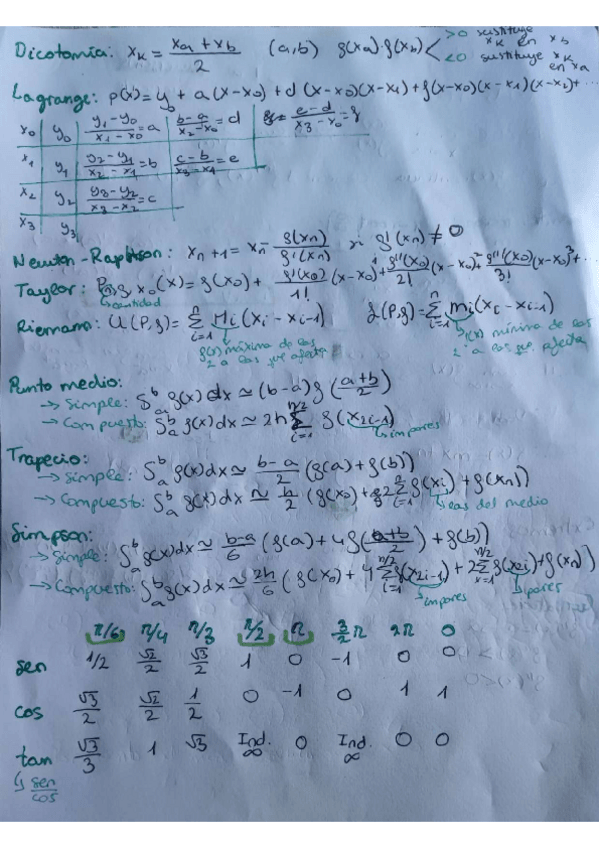 Dicotomía: xₖ = (xa + xb)/2 (a,b) f(xa)·f(xb) < >0 sustituye xₖ en xb
<0 sustituye xₖ en xa
Lagrange: p(x) = y₀ + a(x-x₀) + d(x-x₀)(x-x₁) + f(x-x₀)(x-x₁)(x-x₂) + ...
x₀ | y₀ | (y₁-y₀)/(x₁-x₀) = a | (b-a)/(x₂-x₀) = d | (e-d)/(x₃-x₀) = f
x₁ | y₁ | (y₂-y₁)/(x₂-x₁) = b | (c-b)/(x₃-x₁) = e
x₂ | y₂ | (y₃-y₂)/(x₃-x₂) = c
x₃ | y₃
Newton-Raphson: xₙ+1 = xₙ - f(xₙ)/f'(xₙ) si f'(xₙ) ≠ 0
Taylor: Pₙ,f,x₀(x) = f(x₀) + f'(x₀)/1! (x-x₀)¹ + f''(x₀)/2! (x-x₀)² + f'''(x₀)/3! (x-x₀)³ + ...
↳ cantidad
Riemann: U(P,f) = Σⁿᵢ₌₁ Mi(xi - xi-1) L(P,f) = Σⁿᵢ₌₁ mi(xi - xi-1)
↳ f(x) máxima de los 2 a los que afecta ↳ f(x) mínima de los 2 a los que afecta
Punto medio:
→ Simple: ∫ₐᵇ f(x)dx ≃ (b-a) f((a+b)/2)
→ Compuesto: ∫ₐᵇ f(x)dx ≃ 2h Σ^(n/2)ᵢ₌₁ f(x₂ᵢ₋₁)
↳ impares
Trapecio:
→ Simple: ∫ₐᵇ f(x)dx ≃ (b-a)/2 (f(a) + f(b))
→ Compuesto: ∫ₐᵇ f(x)dx ≃ h/2 (f(x₀) + 2Σᵢ₌₁ f(xi) + f(xₙ))
↳ las del medio
Simpson:
→ Simple: ∫ₐᵇ f(x)dx ≃ (b-a)/6 (f(a) + 4f((a+b)/2) + f(b))
→ Compuesto: ∫ₐᵇ f(x)dx ≃ 2h/6 (f(x₀) + 4Σ^(n/2)ᵢ₌₁ f(x₂ᵢ₋₁) + 2Σ^(n/2) f(x₂ᵢ) + f(xₙ))
↳ impares ↳ pares
π/6 π/4 π/3 π/2 π 3/2 π 2π 0
sen 1/2 √2/2 √3/2 1 0 -1 0 0
cos √3/2 √2/2 1/2 0 -1 0 1 1
tan √3/3 1 √3 Ind. ∞ 0 Ind. ∞ 0 0
↳ sen/cos